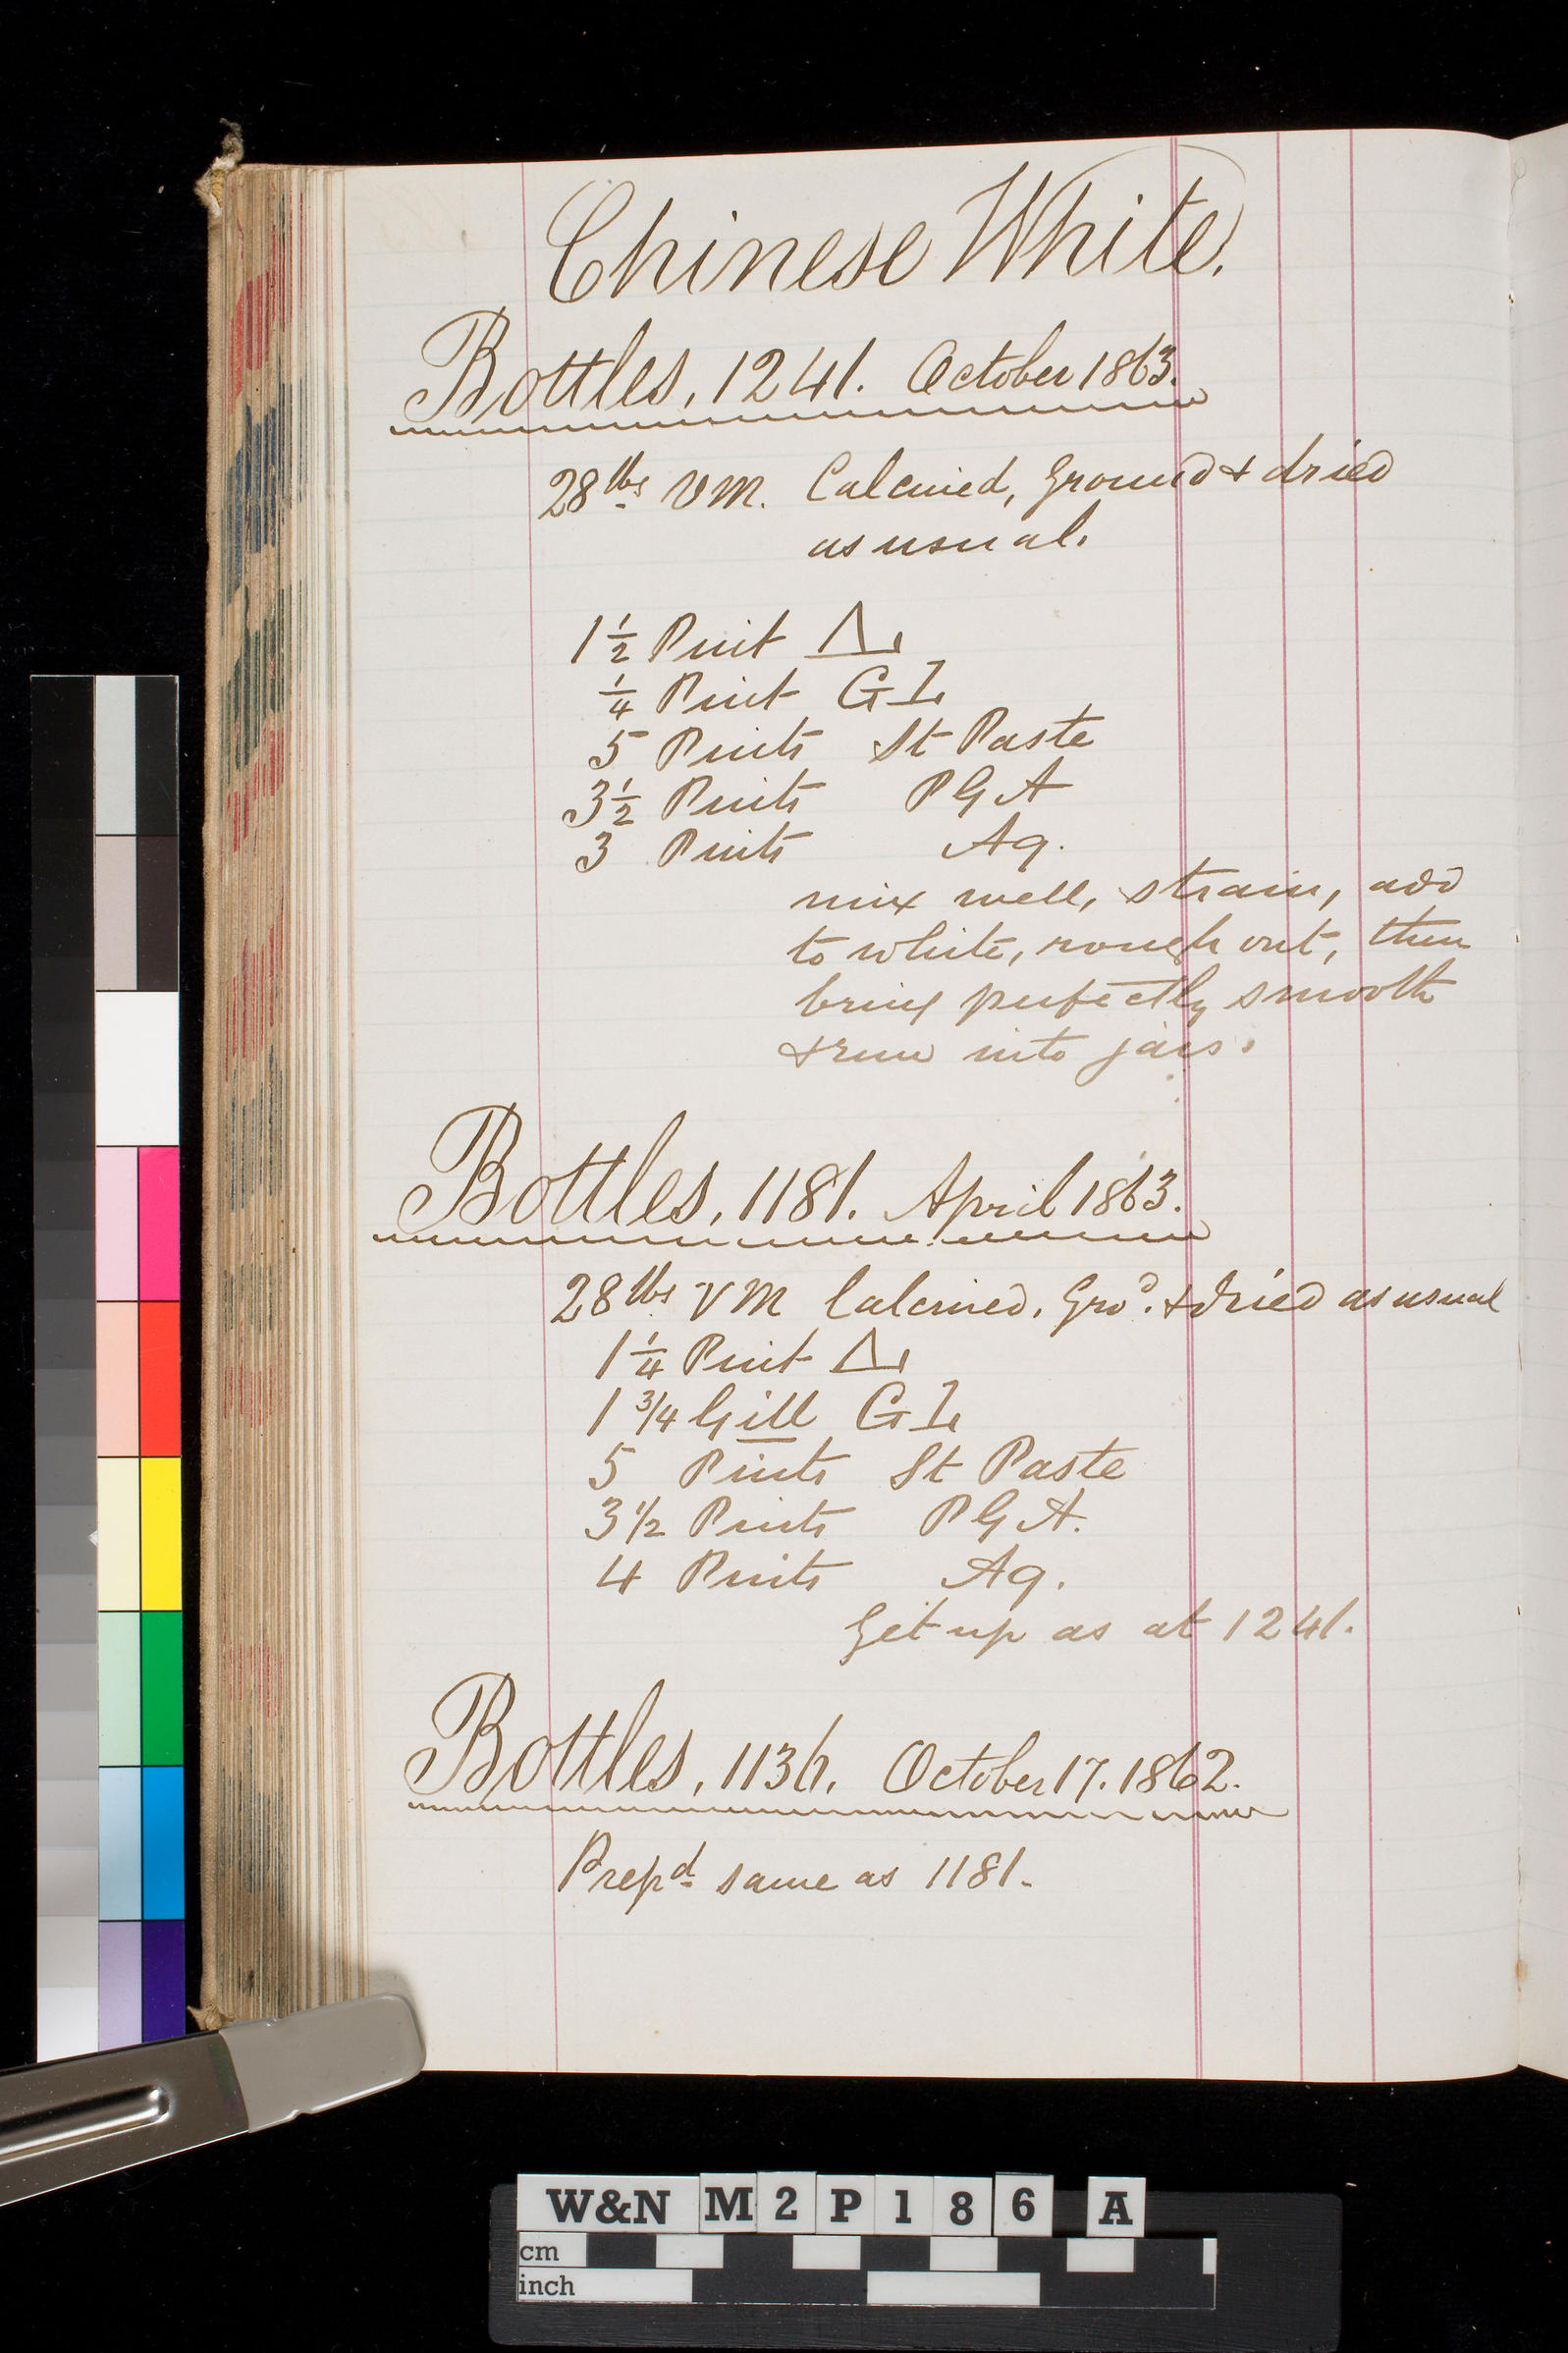 Chinese White.
Bottles, 1241. October 1863.
28 lbs VM. Calcined, Ground & dried
as usual.
1 1/2 Pint
1/4 Pint G
5 Pints St Paste
3 1/2 Pints P G A
3 Pints Aq.
mix well, strain, add
to white, rough out, then
bring perfectly smooth
& run into jars.
Bottles, 1181. April 1863.
28 lbs VM Calcined, Gro.d & dried as usual
1 1/4 Pint
1 3/4 Gill G
5 Pints St Paste
3 1/2 Pints P G A.
4 Pints Aq.
Get up as at 1241.
Bottles, 1136. October 17. 1862.
Prepd same as 1181.
W&N M2P186 A
cm
inch